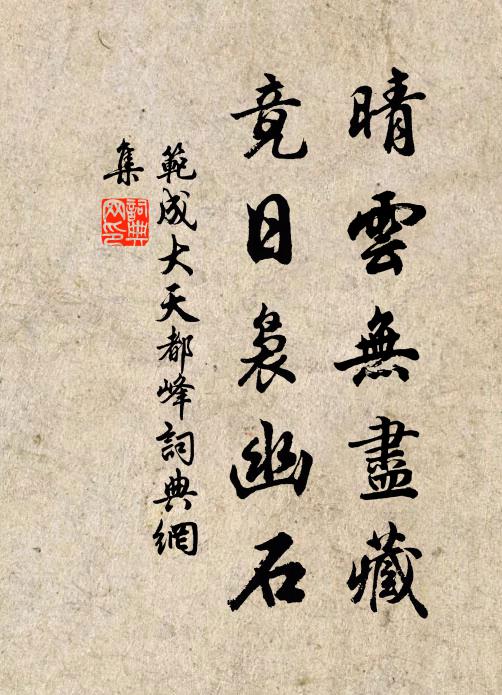 晴雲無盡藏
竟日裊幽石
範成大天都峰詞典網
集
詞典
网印